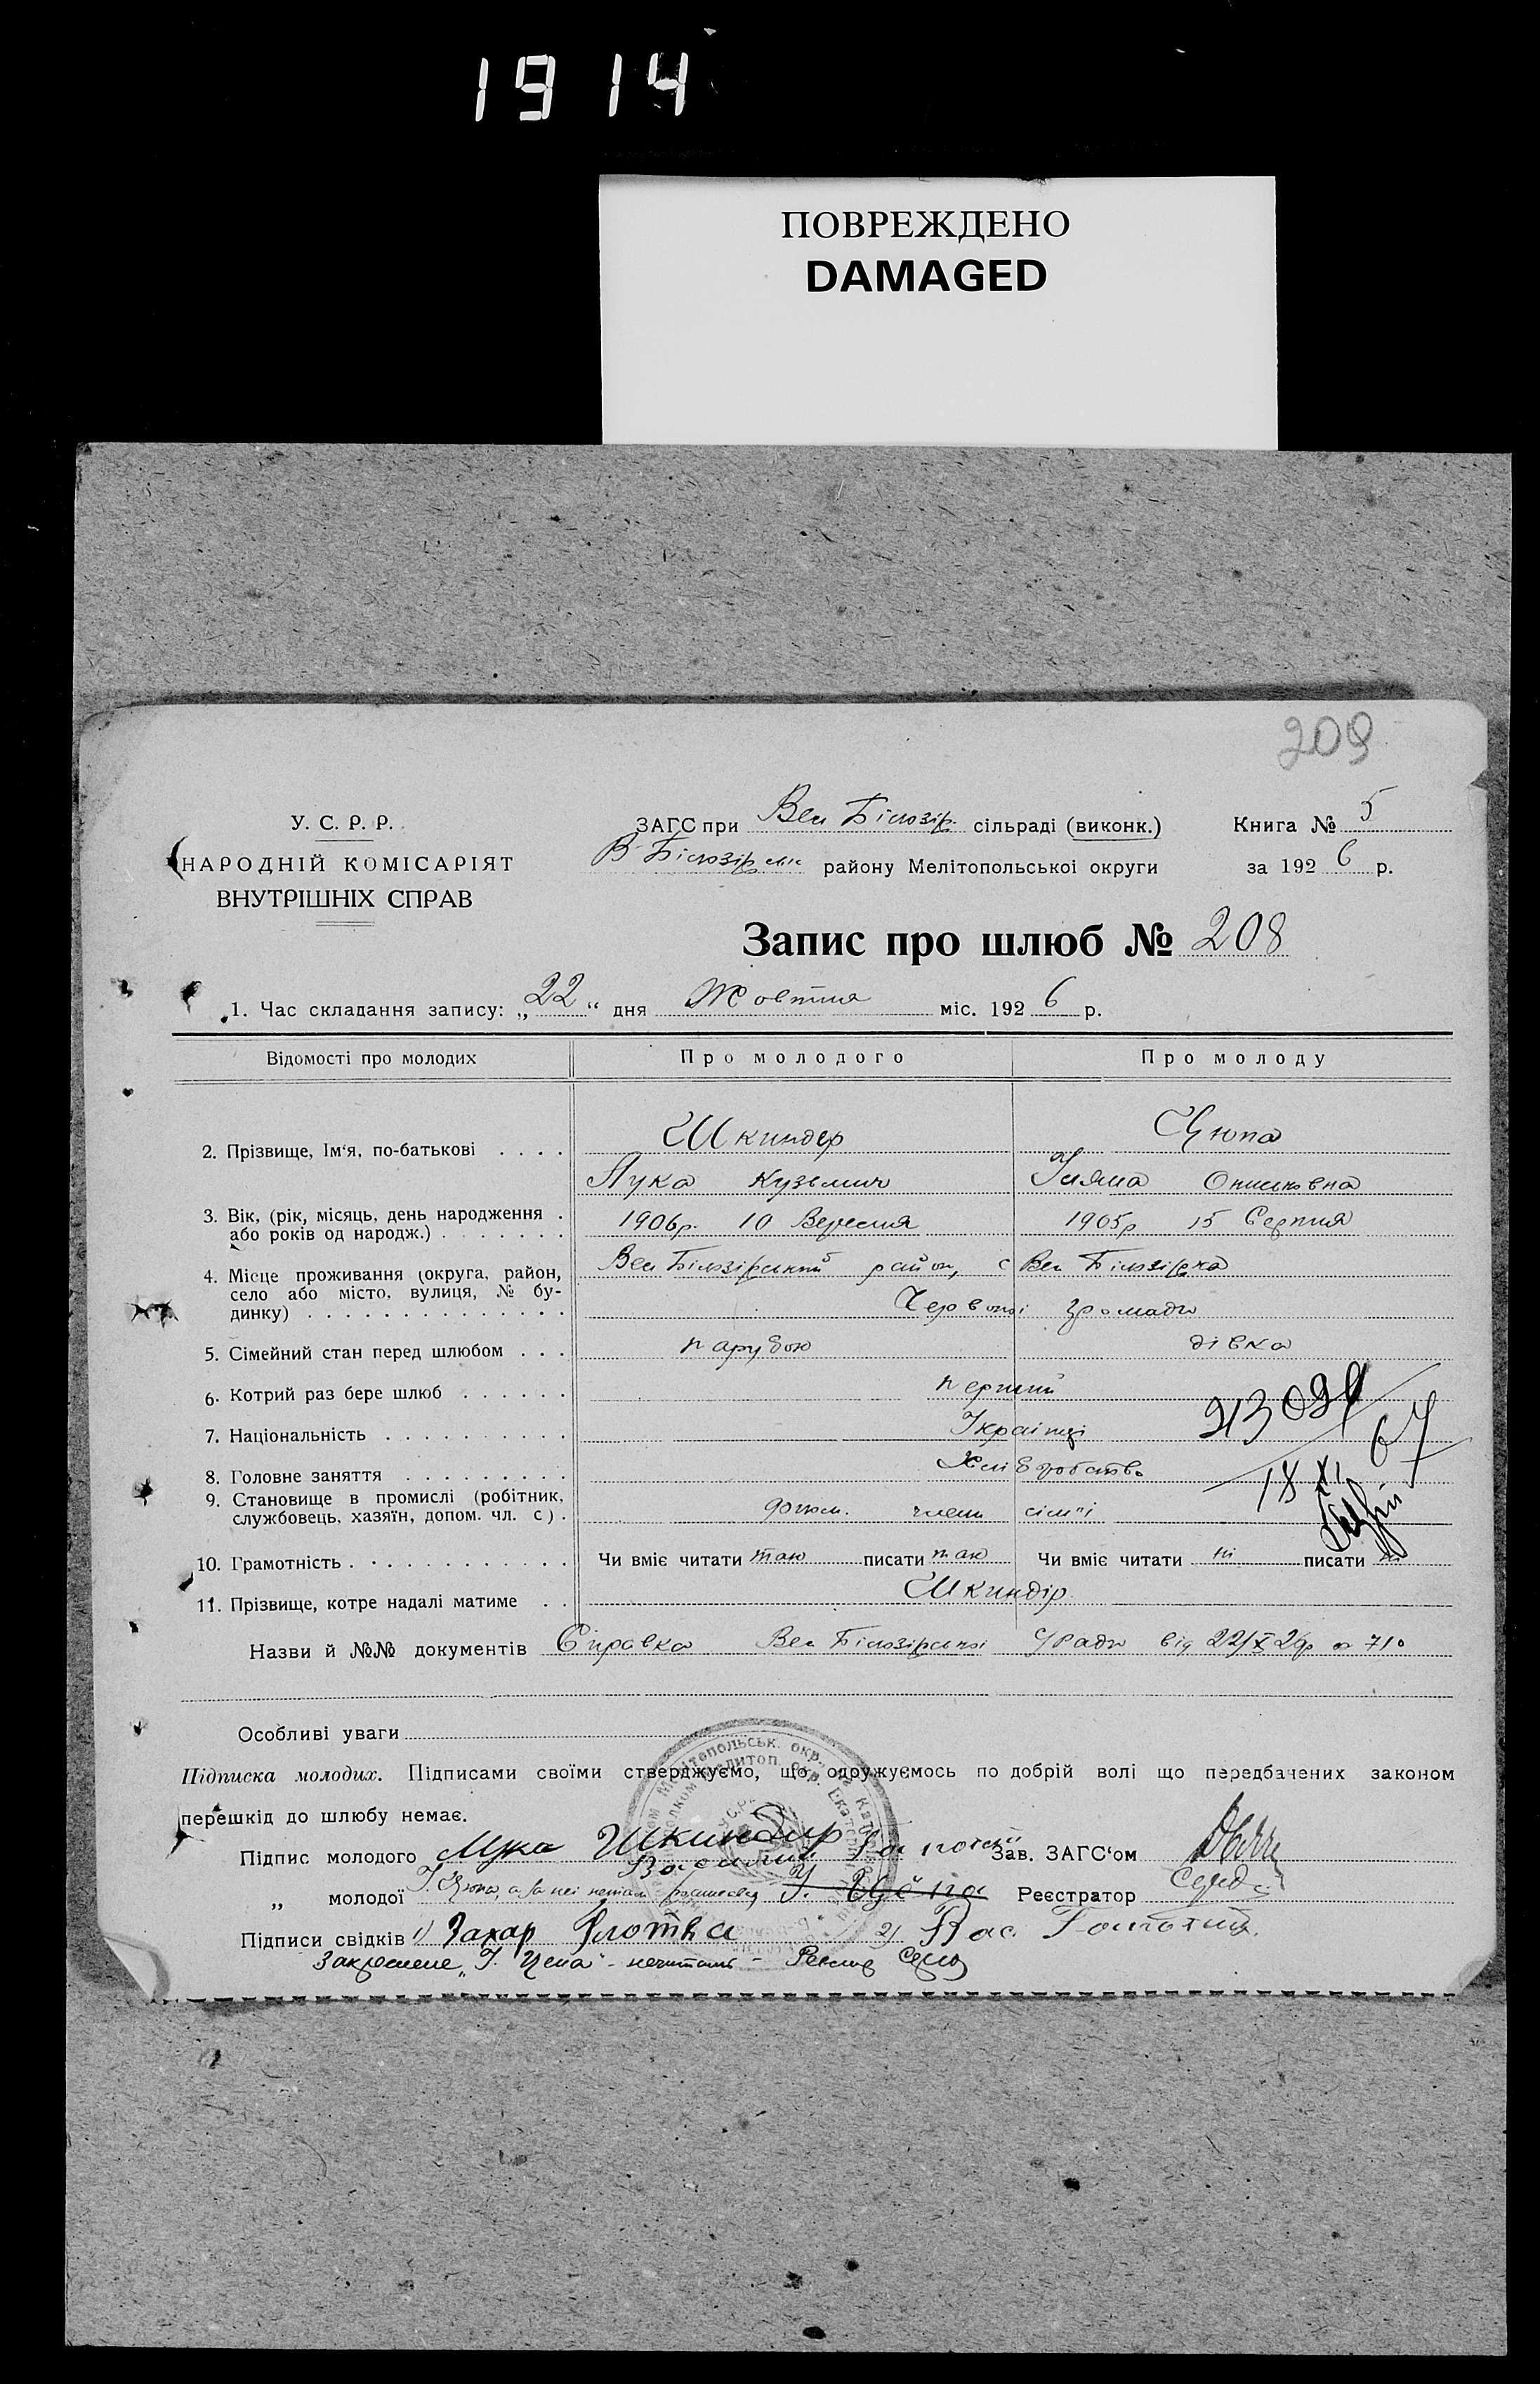 1914
ПОВРЕЖДЕНО
DAMAGED
209
У. С. Р. Р.
НАРОДНІЙ КОМІСАРІЯТ
ВНУТРІШНІХ СПРАВ
ЗАГС при Вел Білозір. сільраді (виконк.)
В-Білозірськ району Мелітопольської округи
Книга № 5
за 1926 р.
Запис про шлюб № 208
1. Час складання запису: „22“ дня Жовтня міс. 1926 р.
Відомості про молодих Про молодого Про молоду
2. Прізвище, Ім'я, по-батькові . . . . Шкиндер Цюпа
Лука Кузьмич Уляна
3. Вік, (рік, місяць, день народження . 1906р. 10 Вересня 1905р 15 Серпня
або років од народж.) . . . . . . .
4. Місце проживання (округа, район, Вел Білозірський район, с Вел Білозірка
село або місто, вулиця, № бу-
динку) . . . . . . . . . . . . . . Червоної громади
5. Сімейний стан перед шлюбом . . . парубок дівка
6. Котрий раз бере шлюб . . . . . . перший
7. Національність . . . . . . . . . . Українці
8. Головне заняття . . . . . . . . . Хліборобство
9. Становище в промислі (робітник,
службовець, хазяїн, допом. чл. с) . допом. члени сім"ї
18 XI 67
10. Грамотність . . . . . . . . . . . . Чи вміє читати так писати так Чи вміє читати ні писати ні
11. Прізвище, котре надалі матиме . . Шкиндір
Назви й №№ документів Справка Вел Білозірської С/Ради від 22/X 26р № 710
Особливі уваги
Підписка молодих. Підписами своїми стверджуємо, що одружуємось по добрій волі що передбачених законом
перешкід до шлюбу немає.
Підпис молодого Лука Шкиндир Зав. ЗАГС'ом
„ молодої Реєстратор
Підписи свідків 1) Захар 2) Вас.
Закреслене „